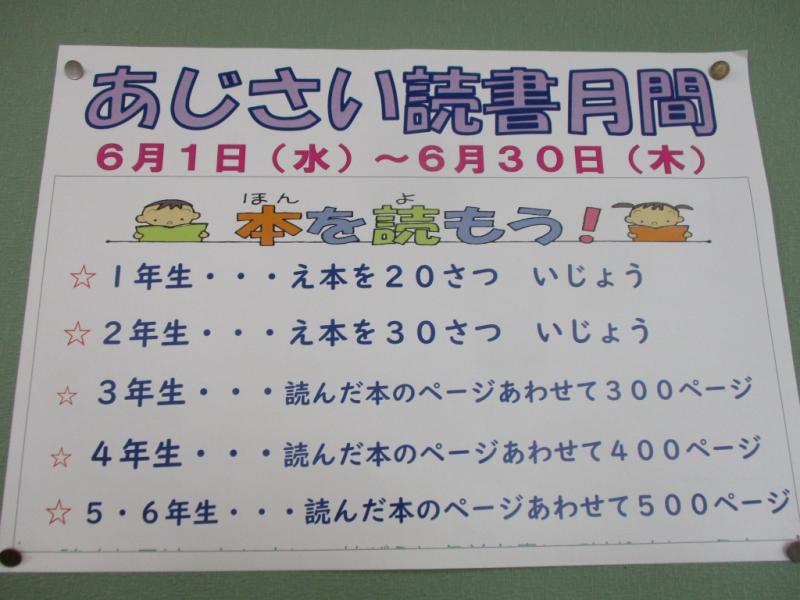 あじさい読書月間
6月1日(水)~6月30日(木)
ほん よ
本を読もう!
☆1年生・・・え本を20さつ いじょう
☆2年生・・・え本を30さつ いじょう
☆3年生・・・読んだ本のページあわせて300ページ
☆4年生・・・読んだ本のページあわせて400ページ
☆5・6年生・・・読んだ本のページあわせて500ページ